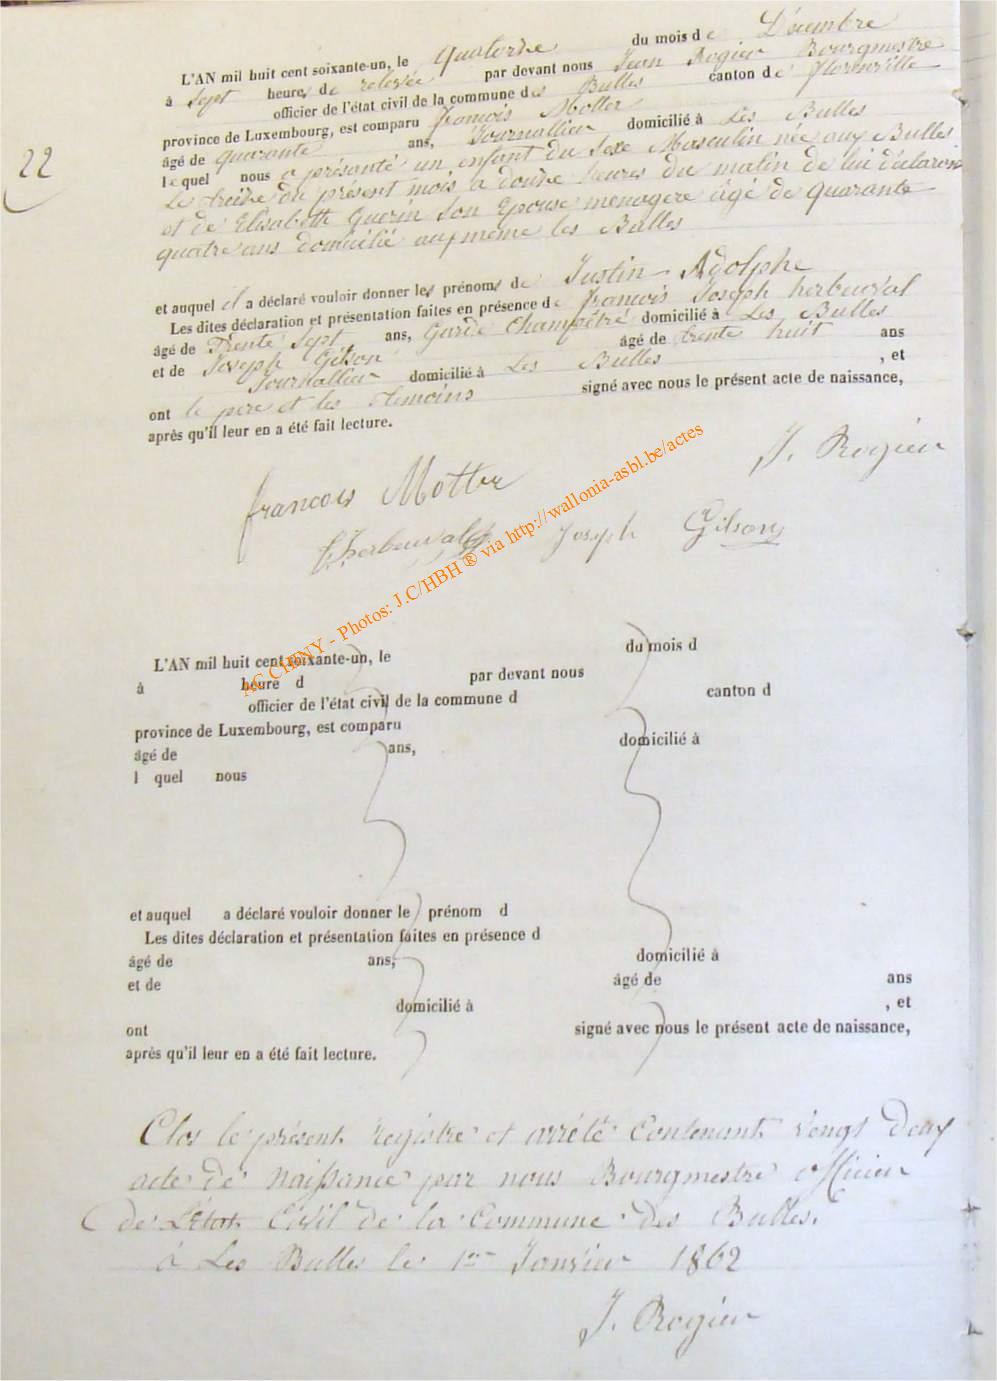 22
L'AN mil huit cent soixante-un, le quatorze du mois de Décembre
à sept heures de relevée par devant nous Jean Rogier Bourgmestre
officier de l'état civil de la commune des Bulles canton de florenville
province de Luxembourg, est comparu françois Motter
âgé de quarante ans, Journallier domicilié à Les Bulles
lequel nous a présanté un enfant du Sexe Masculin née aux Bulles
Le treize du présent mois a douze heures du matin de lui déclarant
et de Elisabeth Guerin Son Epouse menagere âgé de quarante
quatre ans domicilié aux meme les Bulles
et auquel il a déclaré vouloir donner les prénoms de Justin-Adolphe
Les dites déclaration et présentation faites en présence de françois Joseph herbeuval
âgé de Trente Sept ans, Garde Champêtre domicilié à Les Bulles
et de Joseph Gilson âgé de trente huit ans
Journallier domicilié à Les Bulles , et
ont le pere et les témoins signé avec nous le présent acte de naissance,
après qu'il leur en a été fait lecture.
J. Rogier
francois Motter
Herbeuval Joseph Gilson
AC CHINY - Photos: J.C/HBH ® via http://wallonia-asbl.be/actes
L'AN mil huit cent soixante-un, le du mois d
à heure d par devant nous
officier de l'état civil de la commune d canton d
province de Luxembourg, est comparu
âgé de ans, domicilié à
l quel nous
et auquel a déclaré vouloir donner le prénom d
Les dites déclaration et présentation faites en présence d
âgé de ans, domicilié à
et de âgé de ans
domicilié à , et
ont signé avec nous le présent acte de naissance,
après qu'il leur en a été fait lecture.
Clos le présent Registre et arrété Contenant Vingt Deux
acte de naissance par nous Bourgmestre officier
de L'état Civil de la Commune des Bulles.
à Les Bulles le 1er Janvier 1862
J. Rogier